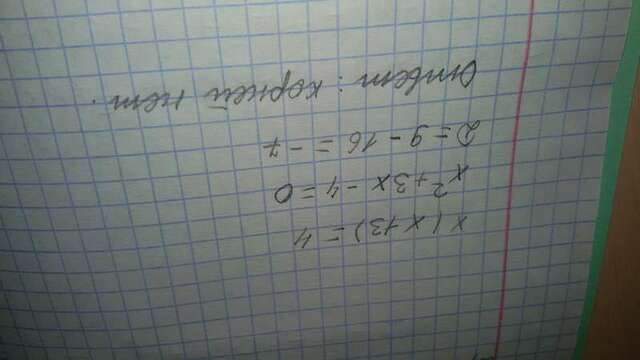 x(x+3)=4
x²+3x-4=0
D=9-16=-7
Ответ: корней нет.